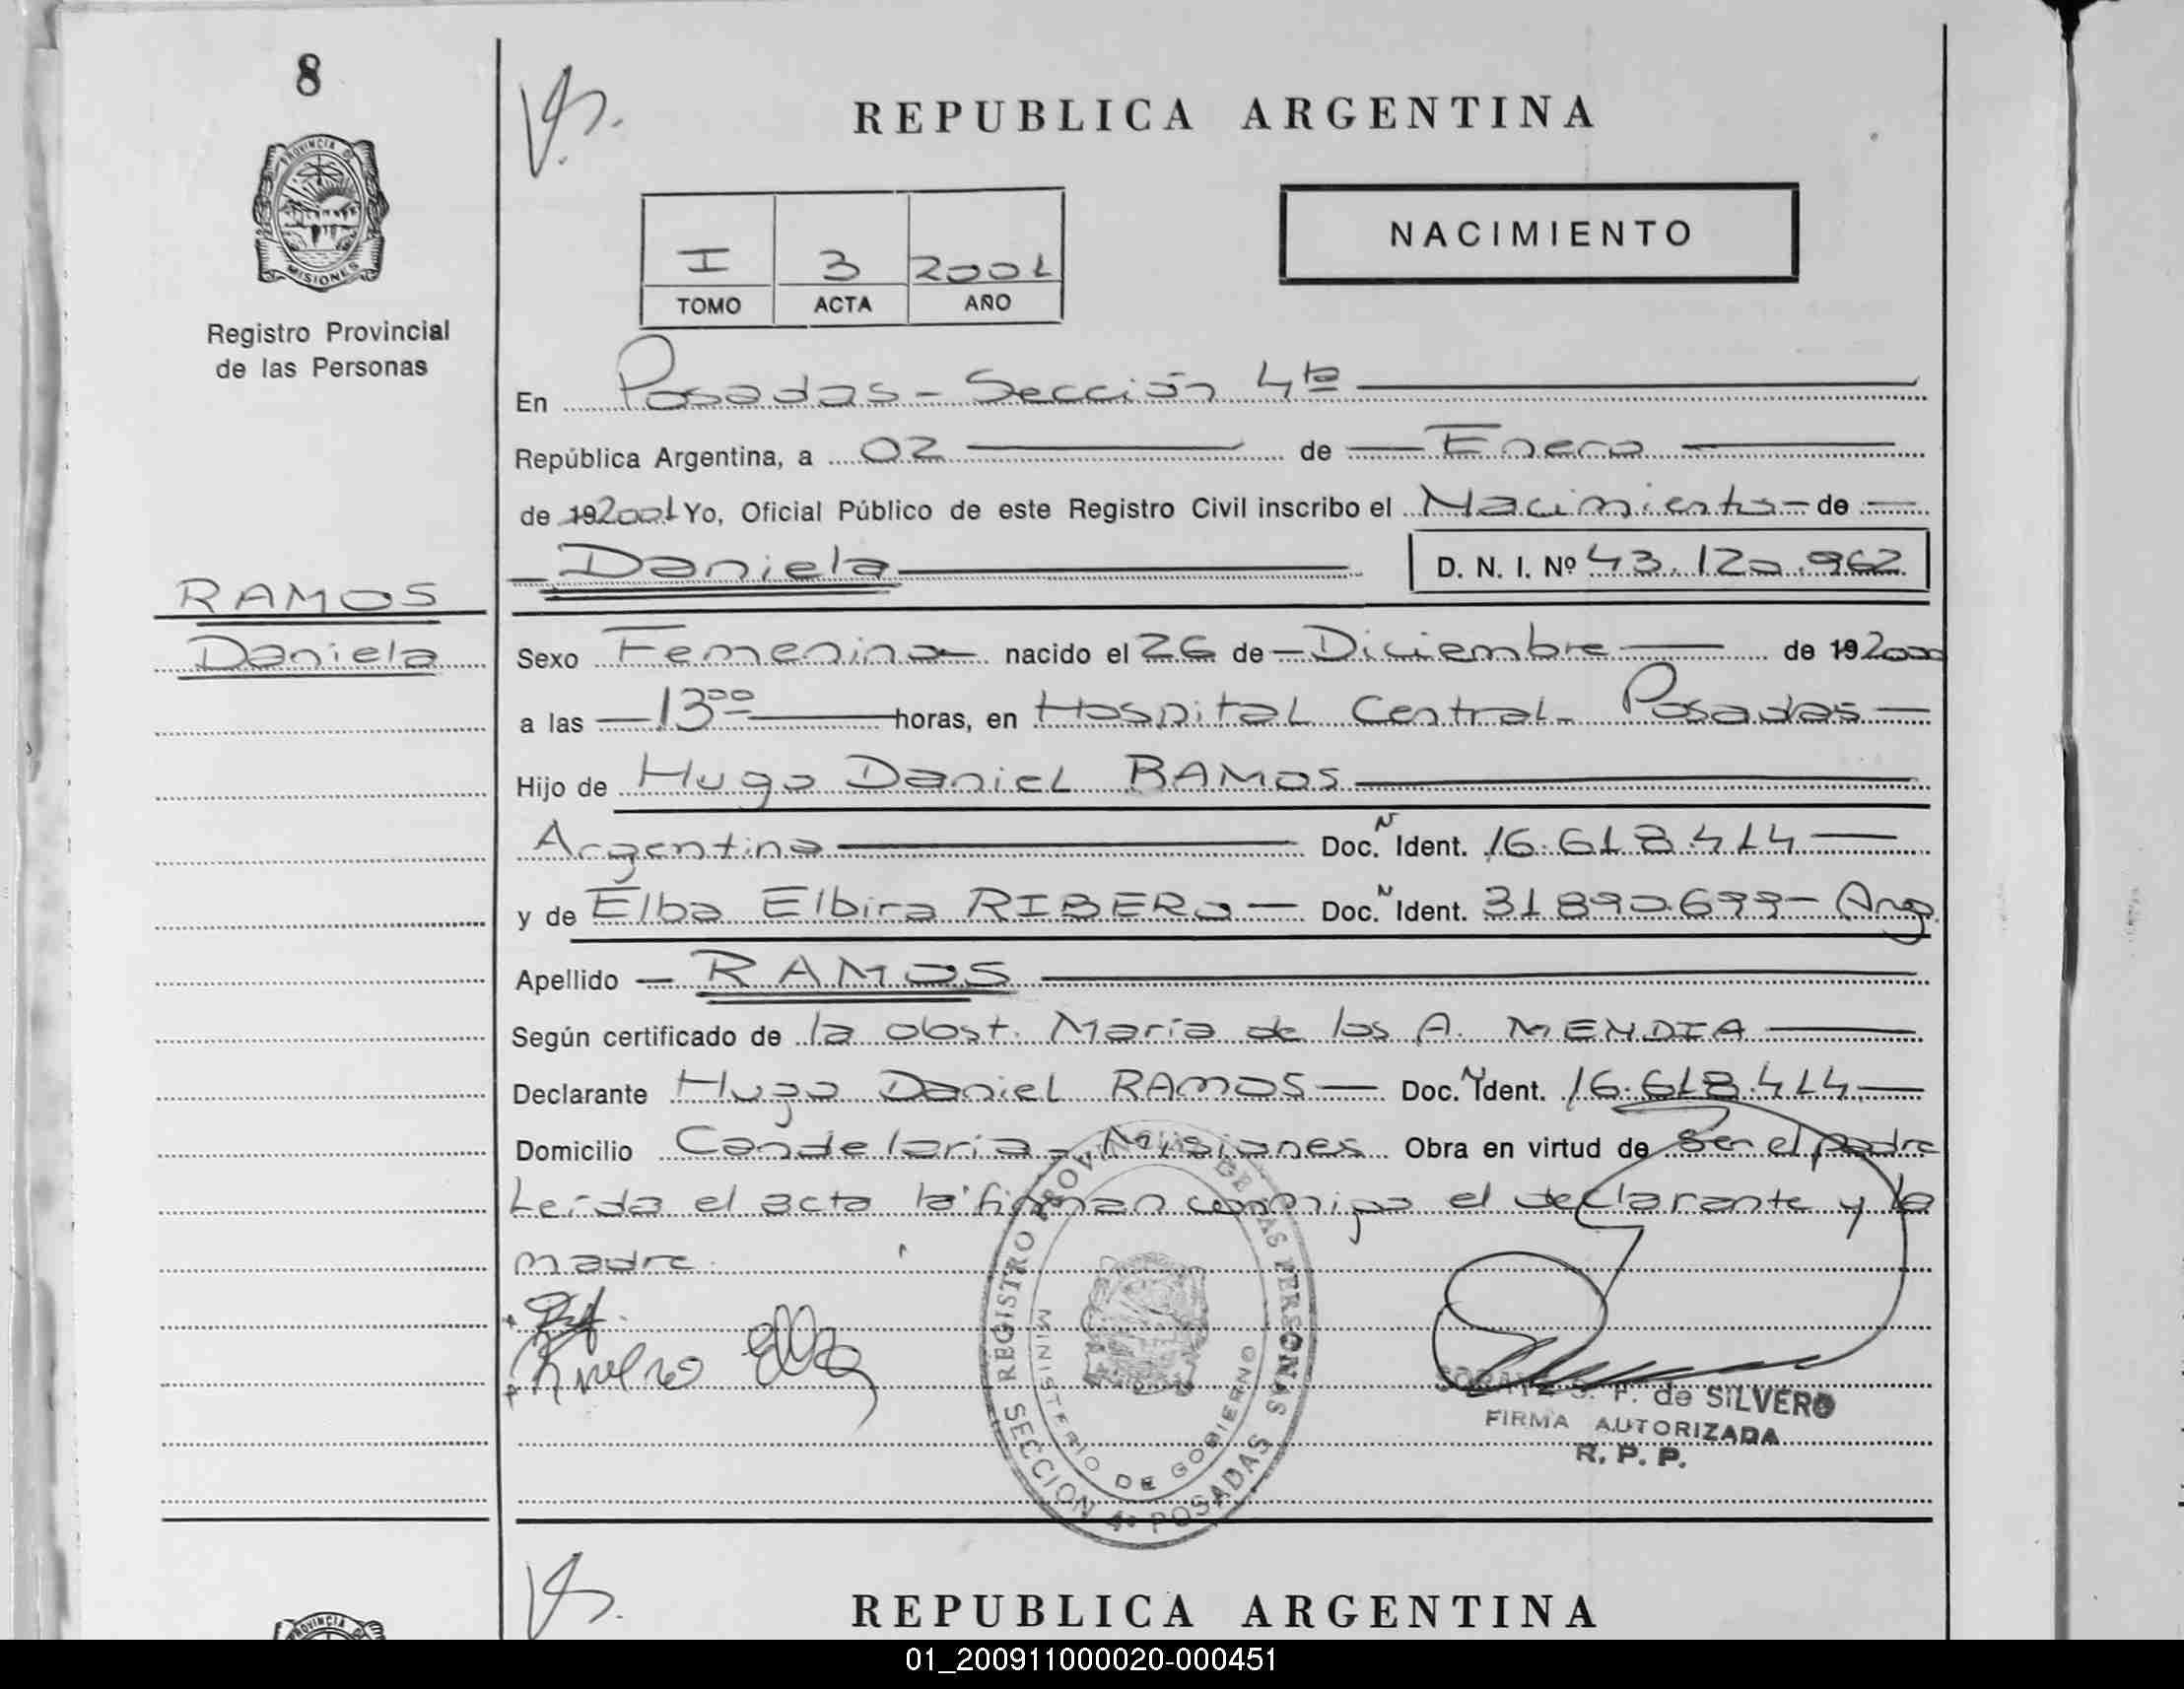 8
PROVINCIA DE
MISIONES
Registro Provincial
de las Personas
REPUBLICA ARGENTINA
NACIMIENTO
I 3 2001
TOMO ACTA AÑO
En Posadas - Sección 4ta
República Argentina, a 02 de Enero
de 192001 Yo, Oficial Público de este Registro Civil inscribo el Nacimiento de
Daniela D. N. I. Nº 43.120.962
RAMOS
Daniela
Sexo Femenino nacido el 26 de Diciembre de 192000
a las 13 00 horas, en Hospital Central - Posadas
Hijo de Hugo Daniel RAMOS
Argentina Doc. N Ident. 16.618.414
y de Elba Elbira RIBERO Doc. N Ident. 31890699 - Arg.
Apellido RAMOS
Según certificado de la obst. María de los A. MENDIA
Declarante Hugo Daniel RAMOS Doc. N Ident. 16.618.414
Domicilio Candelaria - Misiones Obra en virtud de Ser el padre
Leída el acta la firman conmigo el declarante y la
madre.
REGISTRO PROVINCIAL DE LAS PERSONAS
MINISTERIO DE GOBIERNO
SECCION 4ª POSADAS
de SILVERO
FIRMA AUTORIZADA
R. P. P.
REPUBLICA ARGENTINA
PROVINCIA DE
01_200911000020-000451